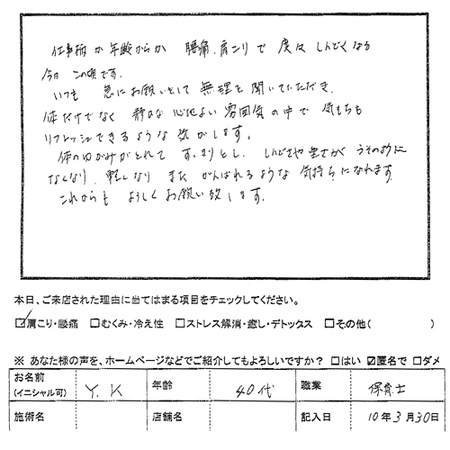 仕事柄か年齢からか 腰痛、肩こりで 度々 しんどくなる
今日この頃です。
いつも 急にお願いをして 無理を聞いていただき、
体だけでなく 静かな 心地よい 雰囲気の中で 気もちも
リフレッシュできるような 気がします。
体のゆがみがとれて すっきりとし、しんどさや重さが うそのように
なくなり、軽くなり また がんばれるような 気持ちになれます。
これからも よろしくお願い致します。
本日、ご来店された理由に当てはまる項目をチェックしてください。
☑肩こり・腰痛 □むくみ・冷え性 □ストレス解消・癒し・デトックス □その他( )
※ あなた様の声を、ホームページなどでご紹介してもよろしいですか? □はい ☑匿名で □ダメ
お名前 (イニシャル可) Y.K 年齢 40代 職業 保育士
施術名 店舗名 記入日 10年3月30日